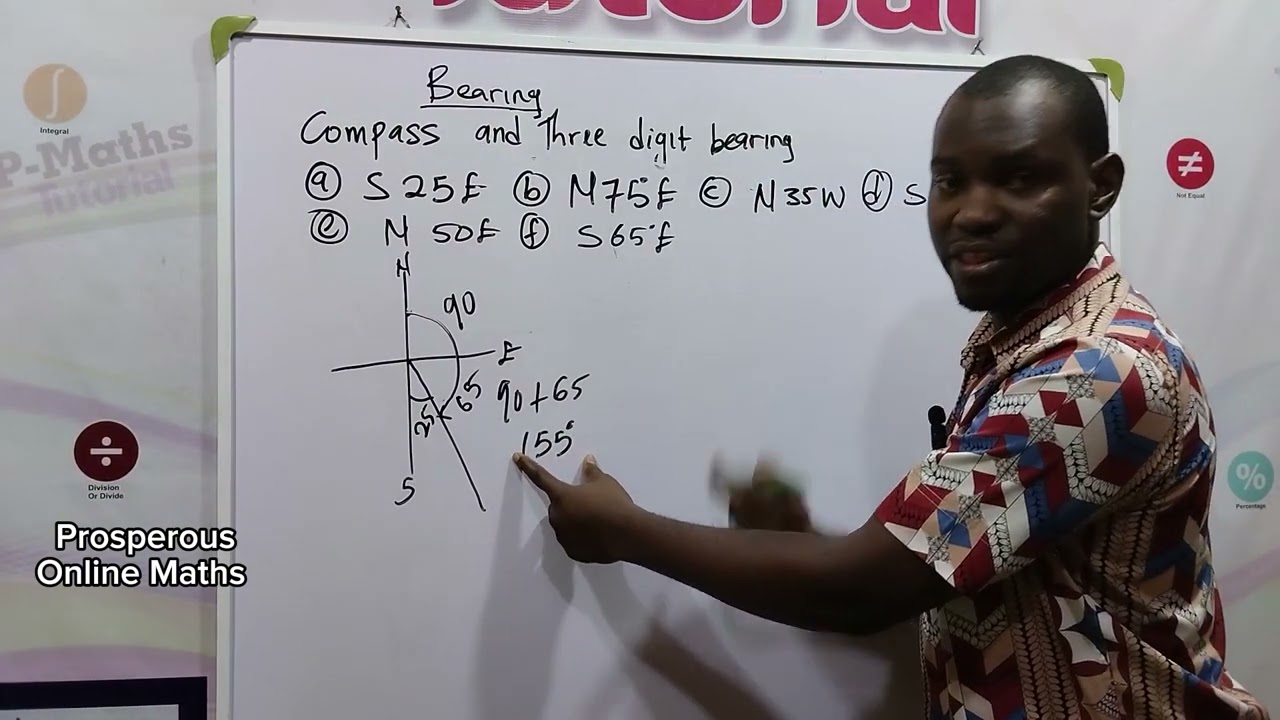 Tutorial
Bearing
Compass and Three digit bearing
ⓐ S 25E ⓑ N 75°E ⓒ N 35W ⓓ S
ⓔ N 50E ⓕ S 65°E
N
90
E
65
25
S
90+65
155°
Integral
P-Maths
Tutorial
÷
Division
Or Divide
Prosperous
Online Maths
≠
Not Equal
%
Percentage